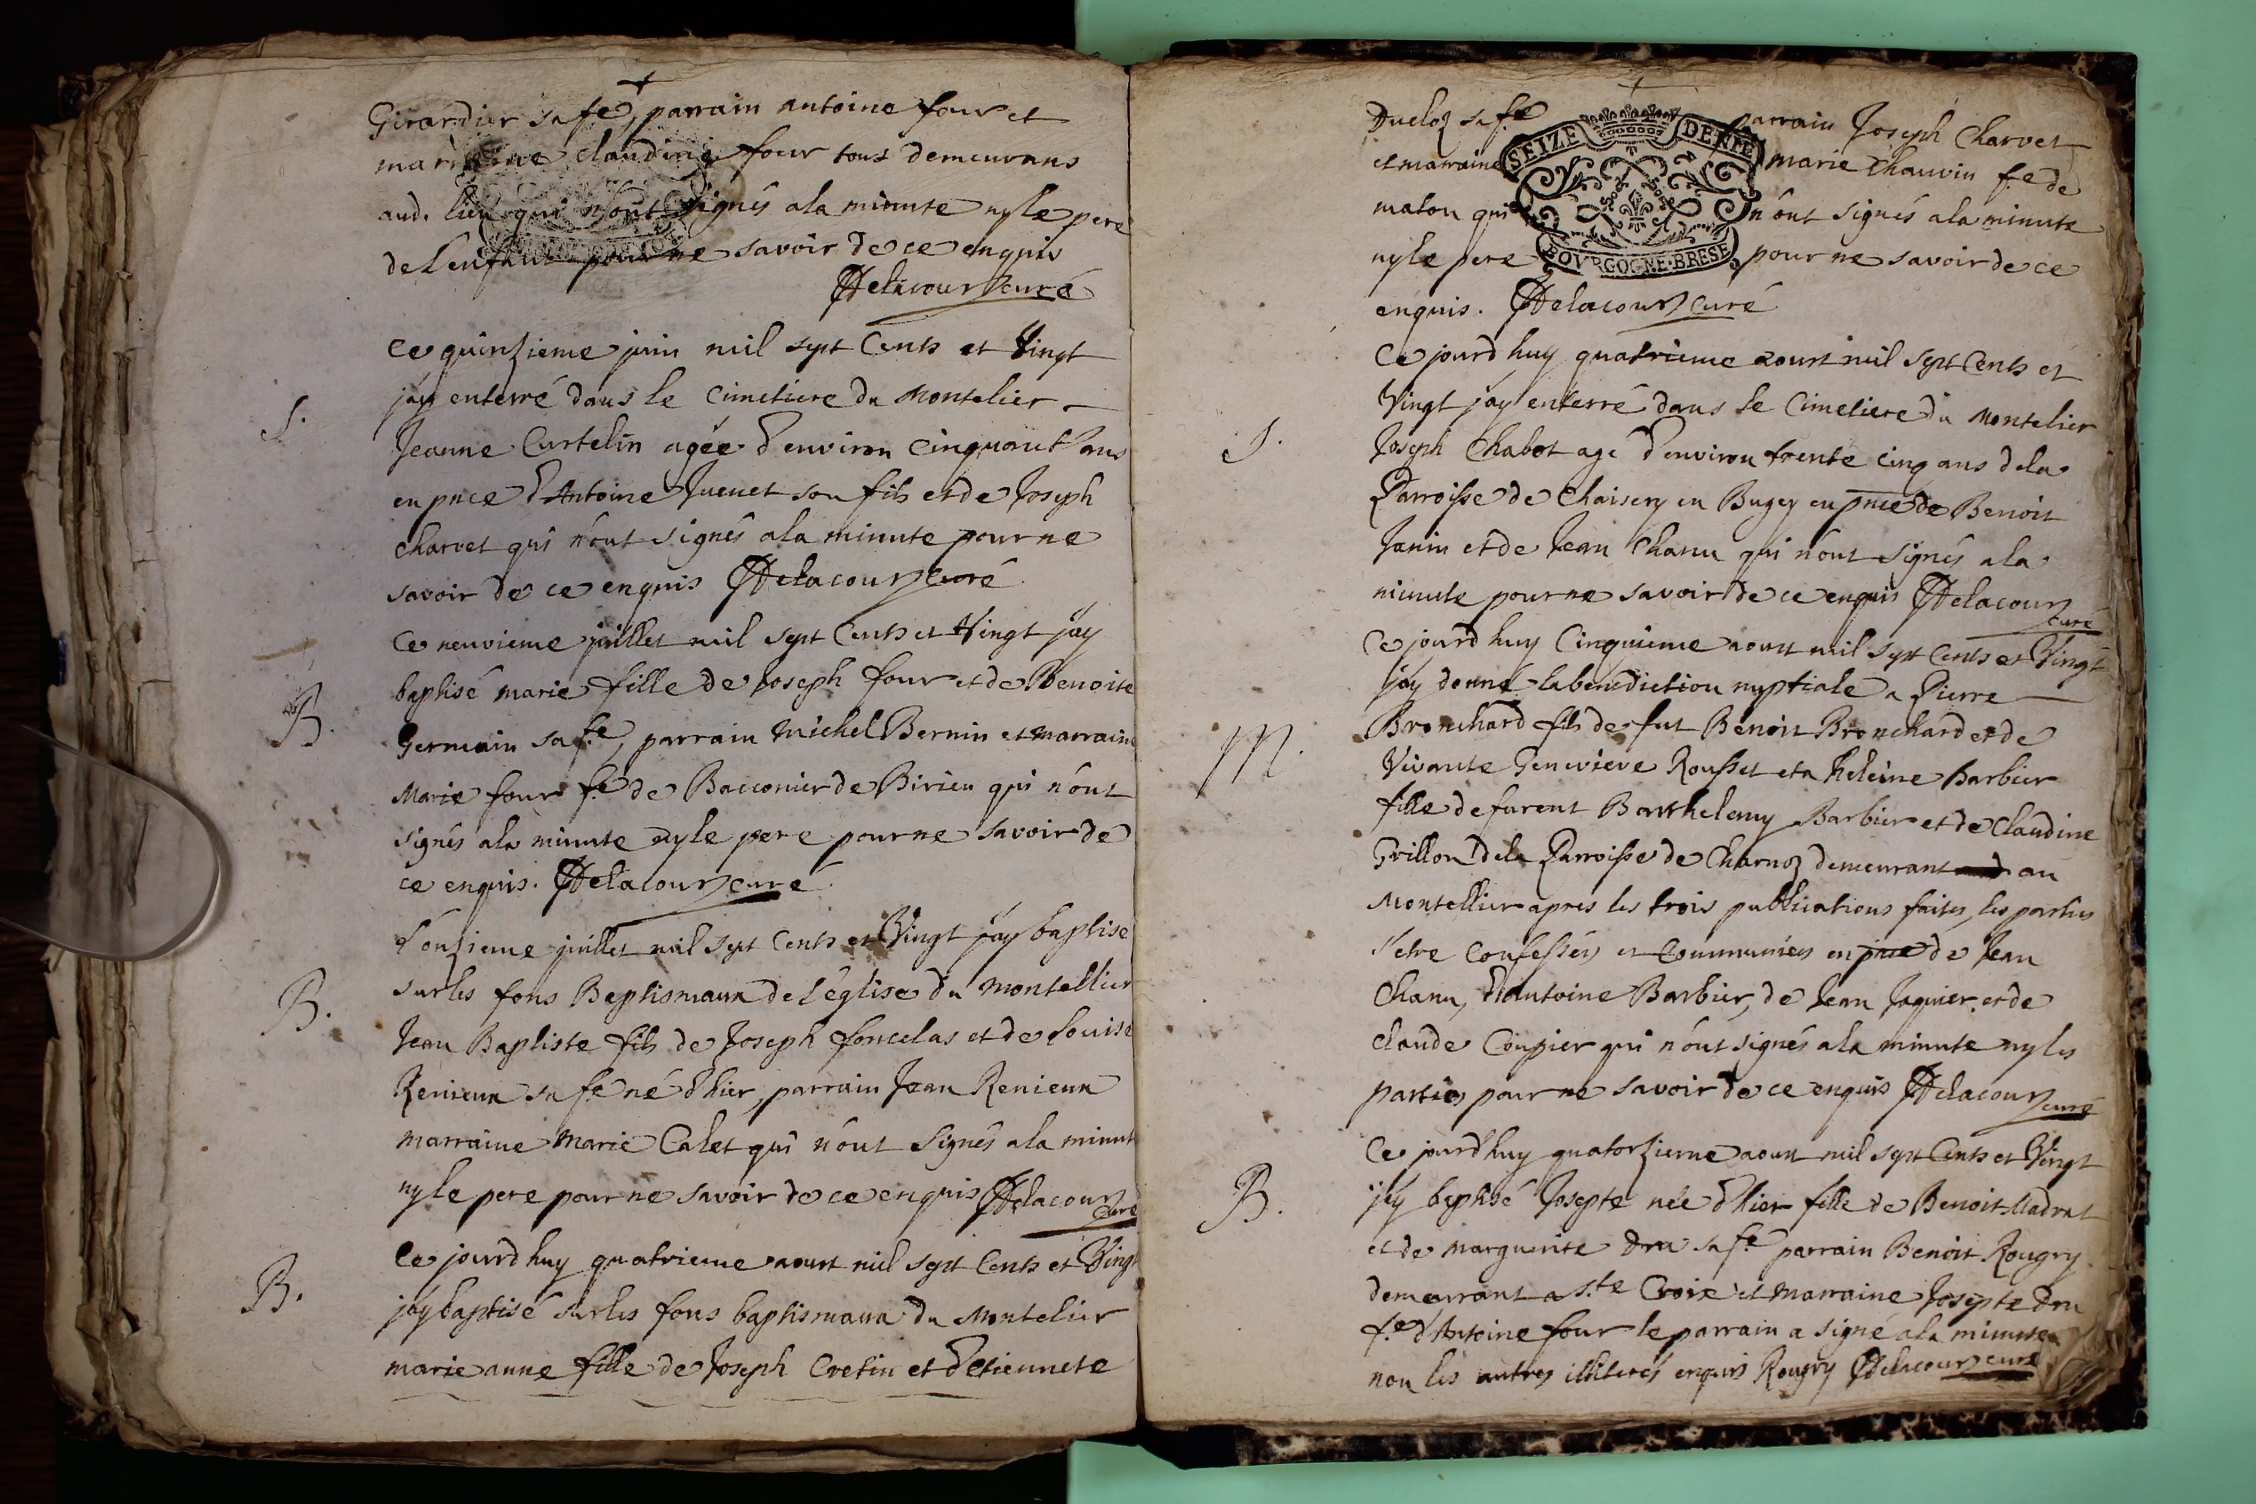 Girardier sa fe, parrain antoine four et
marraine claudine four tous demeurans
aud. lieu qui n'ont signés a la minute ny le pere
de l'enfant pour ne savoir de ce enquis
Delacour curé
Ce quinzieme juin mil sept Cents et Vingt
S.
jáy enterré dans le Cimetiere du Montelier
Jeanne Curtelin agée d'environ Cinquant ans
en pnce d'Antoine Juenet son fils et de Joseph
Charvet qui n'ont signés a la minute pour ne
savoir de ce enquis Delacour curé
Ce neuvieme juillet mil sept Cents et Vingt jáy
B.
baptisé marie fille de Joseph four et de Benoite
Germain sa fe, parrain Michel Bernin et marraine
Marie four fe de Bacconier de Birieu qui n'ont
signés a la minute ny le pere pour ne savoir de
ce enquis. Delacour curé
L'onzieme juillet mil sept Cents et Vingt jáy baptisé
B.
sur les fons Baptismaux de l'église du Montellier
Jean Baptiste fils de Joseph foncelas et de Louise
Renieux sa fe né d'hier, parrain Jean Renieux
marraine Marie Calet qui n'ont signés a la minute
ny le pere pour ne savoir de ce enquis Delacour
curé
Ce jourd huy quatrieme aoust mil sept Cents et Vingt
B.
jáy baptisé sur les fons baptismaux du Montelier
marie anne fille de Joseph Cretin et d'etiennete
Ducloz sa fe parrain Joseph Charvet
SEIZE DENIE
et marraine marie Chauvin fe de
maton qui n'ont signés a la minute
ny le pere pour ne savoir de ce
BOURGOGNE·BRESE
enquis. Delacour curé
Ce jourd huy quatrieme aoust mil sept Cents et
Vingt jáy enterré dans le Cimetiere du Montelier
S.
Joseph Chabot agé d'environ trente cinq ans de la
Parroisse de Chaisery en Bugey en pnce de Benoit
Janin et de Jean Chanu qui n'ont signés a la
minute pour ne savoir de ce enquis Delacour
curé
Ce jourd huy Cinquieme aoust mil sept Cents et Vingt
jáy donné la benediction nyptiale a Pierre
M.
Bronchard fils de fut Benoit Bronchard et de
Vivante Genevieve Rousset et a heleine Barbier
fille de furent Barthelemy Barbier et de Claudine
Grillon de la Parroisse de Charnoz demeurant au
Montellier apres les trois publications faites, les parties
s'etre Confessées et Communiées en pnce de Jean
Chanu, d'Antoine Barbier, de Jean Jaquier, et de
Claude Coupier qui n'ont signés a la minute ny les
parties pour ne savoir de ce enquis Delacour
curé
Ce jourd'huy quatorzieme aoust mil sept Cents et Vingt
B.
jáy baptisé Josepte née d'hier fille de Benoit Madrat
et de Marguerite Dru sa fe parrain Benoit Rougry
demeurant a Ste Croix et marraine Josepte Dru
fe d'Antoine four le parrain a signé a la minute
non les autres illiterés enquis Rougry Delacour curé